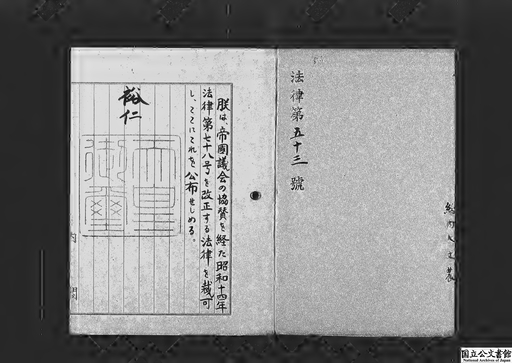 法律第五十三號
朕は、帝國議会の協賛を経た昭和十四年
法律第七十八号を改正する法律を裁可
し、ここにこれを公布せしめる。
裕仁
天皇
御璽
内
閣
国立公文書館
National Archives of Japan